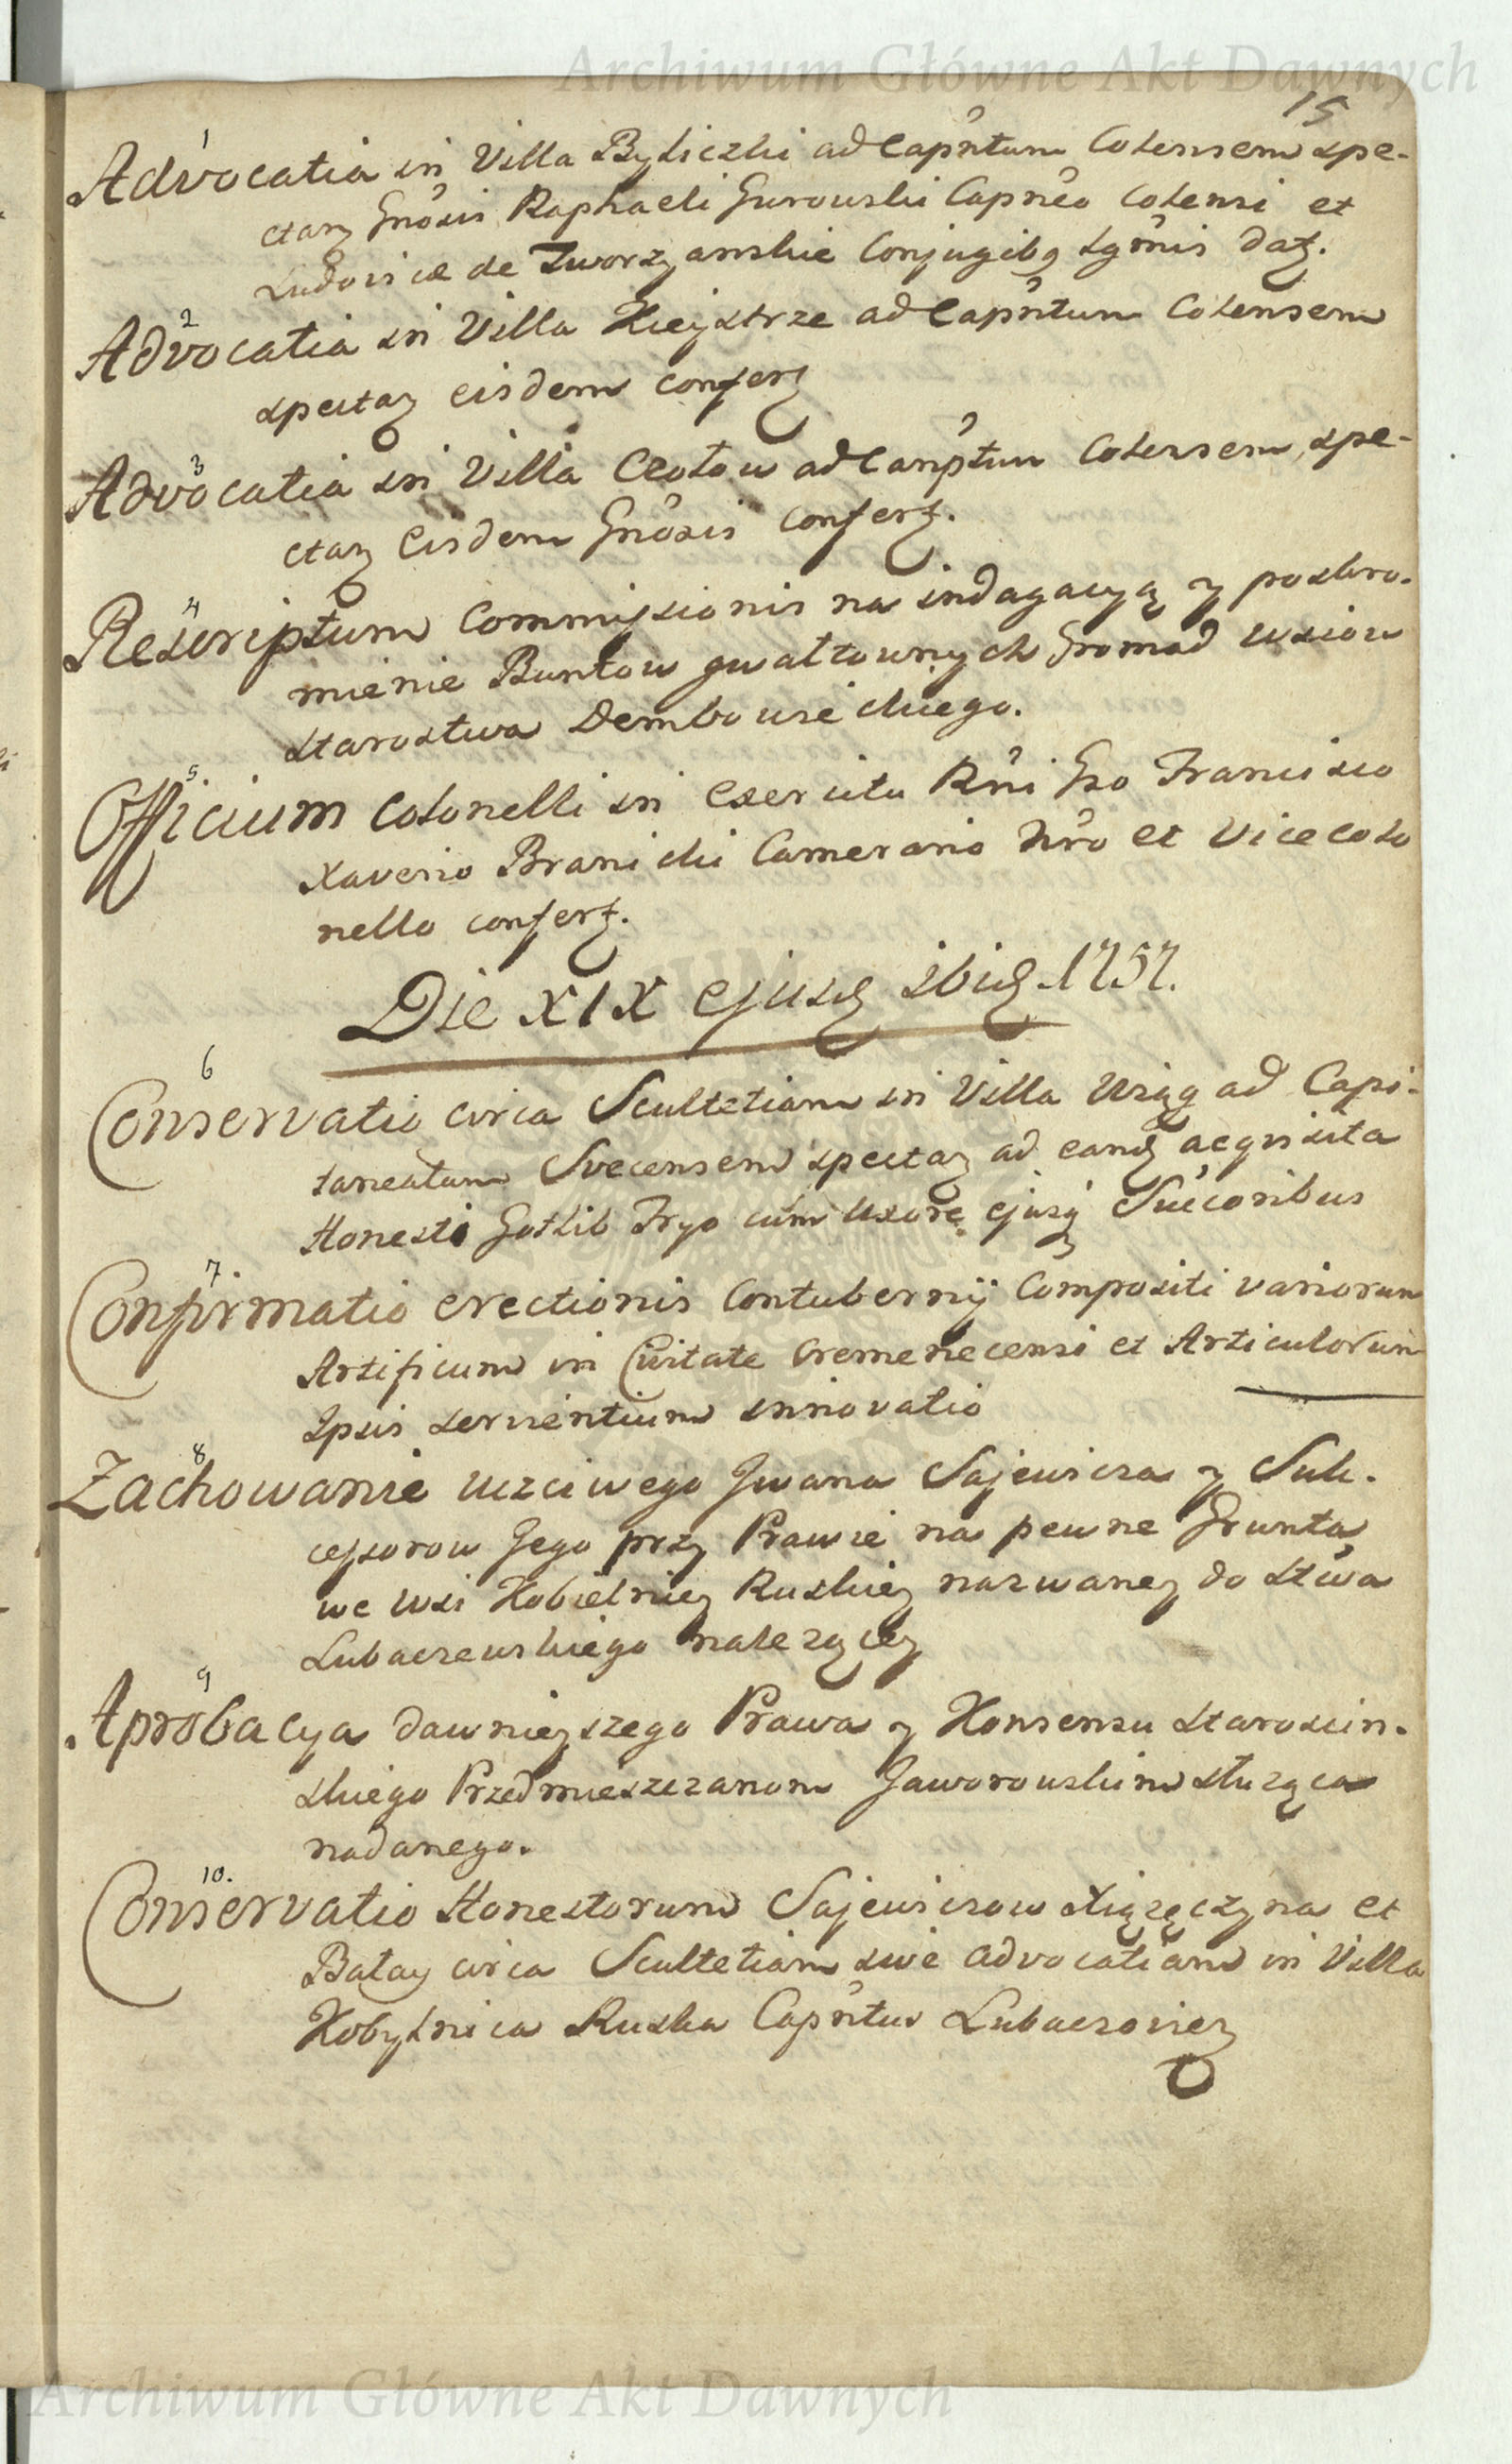 Archiwum Główne Akt Dawnych
15
1
Advocatia in Villa Byliczki ad Capñtum Colensem spe-
ctaɳ Gnôsis Raphaeli Gurowski Capnêo Colensi et
Ludovicæ de Tworzyanskie Conjugibꝫ Lgmîs datꝫ.
2
Advocatia in Villa Kiejstrze ad Capñtum Colensem
spectaɳ eisdem confertꝫ
3
Advocatia in Villa Ceotow ad Canptûm Colensem, spe-
ctaɳ Eisdem Gnôsis confertꝫ.
4
Rescriptum Commissionis na indagacyą y poskro-
mienie Buntow gwałtownych Gromad wsiow
starostwa Dembowieckiego.
5
Officium Colonelli in Exercitu Rñi Gso Francisco
Xaverio Branicki Camerario Nrô et Vice Colo
nello confertꝫ.
Die XIX ejusd ibid. 1757.
6
Conservatio circa Scultetiam in Villa Wiąg ad Capi-
taneatum Svecensem spectaɳ ad eand acqvisita
Honesti Gotlib Fryo cum Uxore ejusq Succoribus
7
Confirmatio erectionis Contubernij Compositi variorum
Artificum in Civitate Cremenecensi et Articulorum
Ipsis servientium innovatio
8
Zachowanie uczciwego Jwana Sajewicza y Suk-
cessorow Jego przy Prawie na pewne Grunta
we wsi Kobielniey Ruskiey nazwaney do Stwa
Lubaczewskiego należącey
9
Aprobacya dawnieyszego Prawa y Konsensu Staroscin-
skiego Przedmieszczanom Jaworowskim służąca
nadanego.
10.
Conservatio Honestorum Sajewiczow Xiążęczyna et
Batay circa Scultetiam sive advocatiam in Villa
Kobylnica Ruska Capñtus Lubaczoviez
Archiwum Główne Akt Dawnych